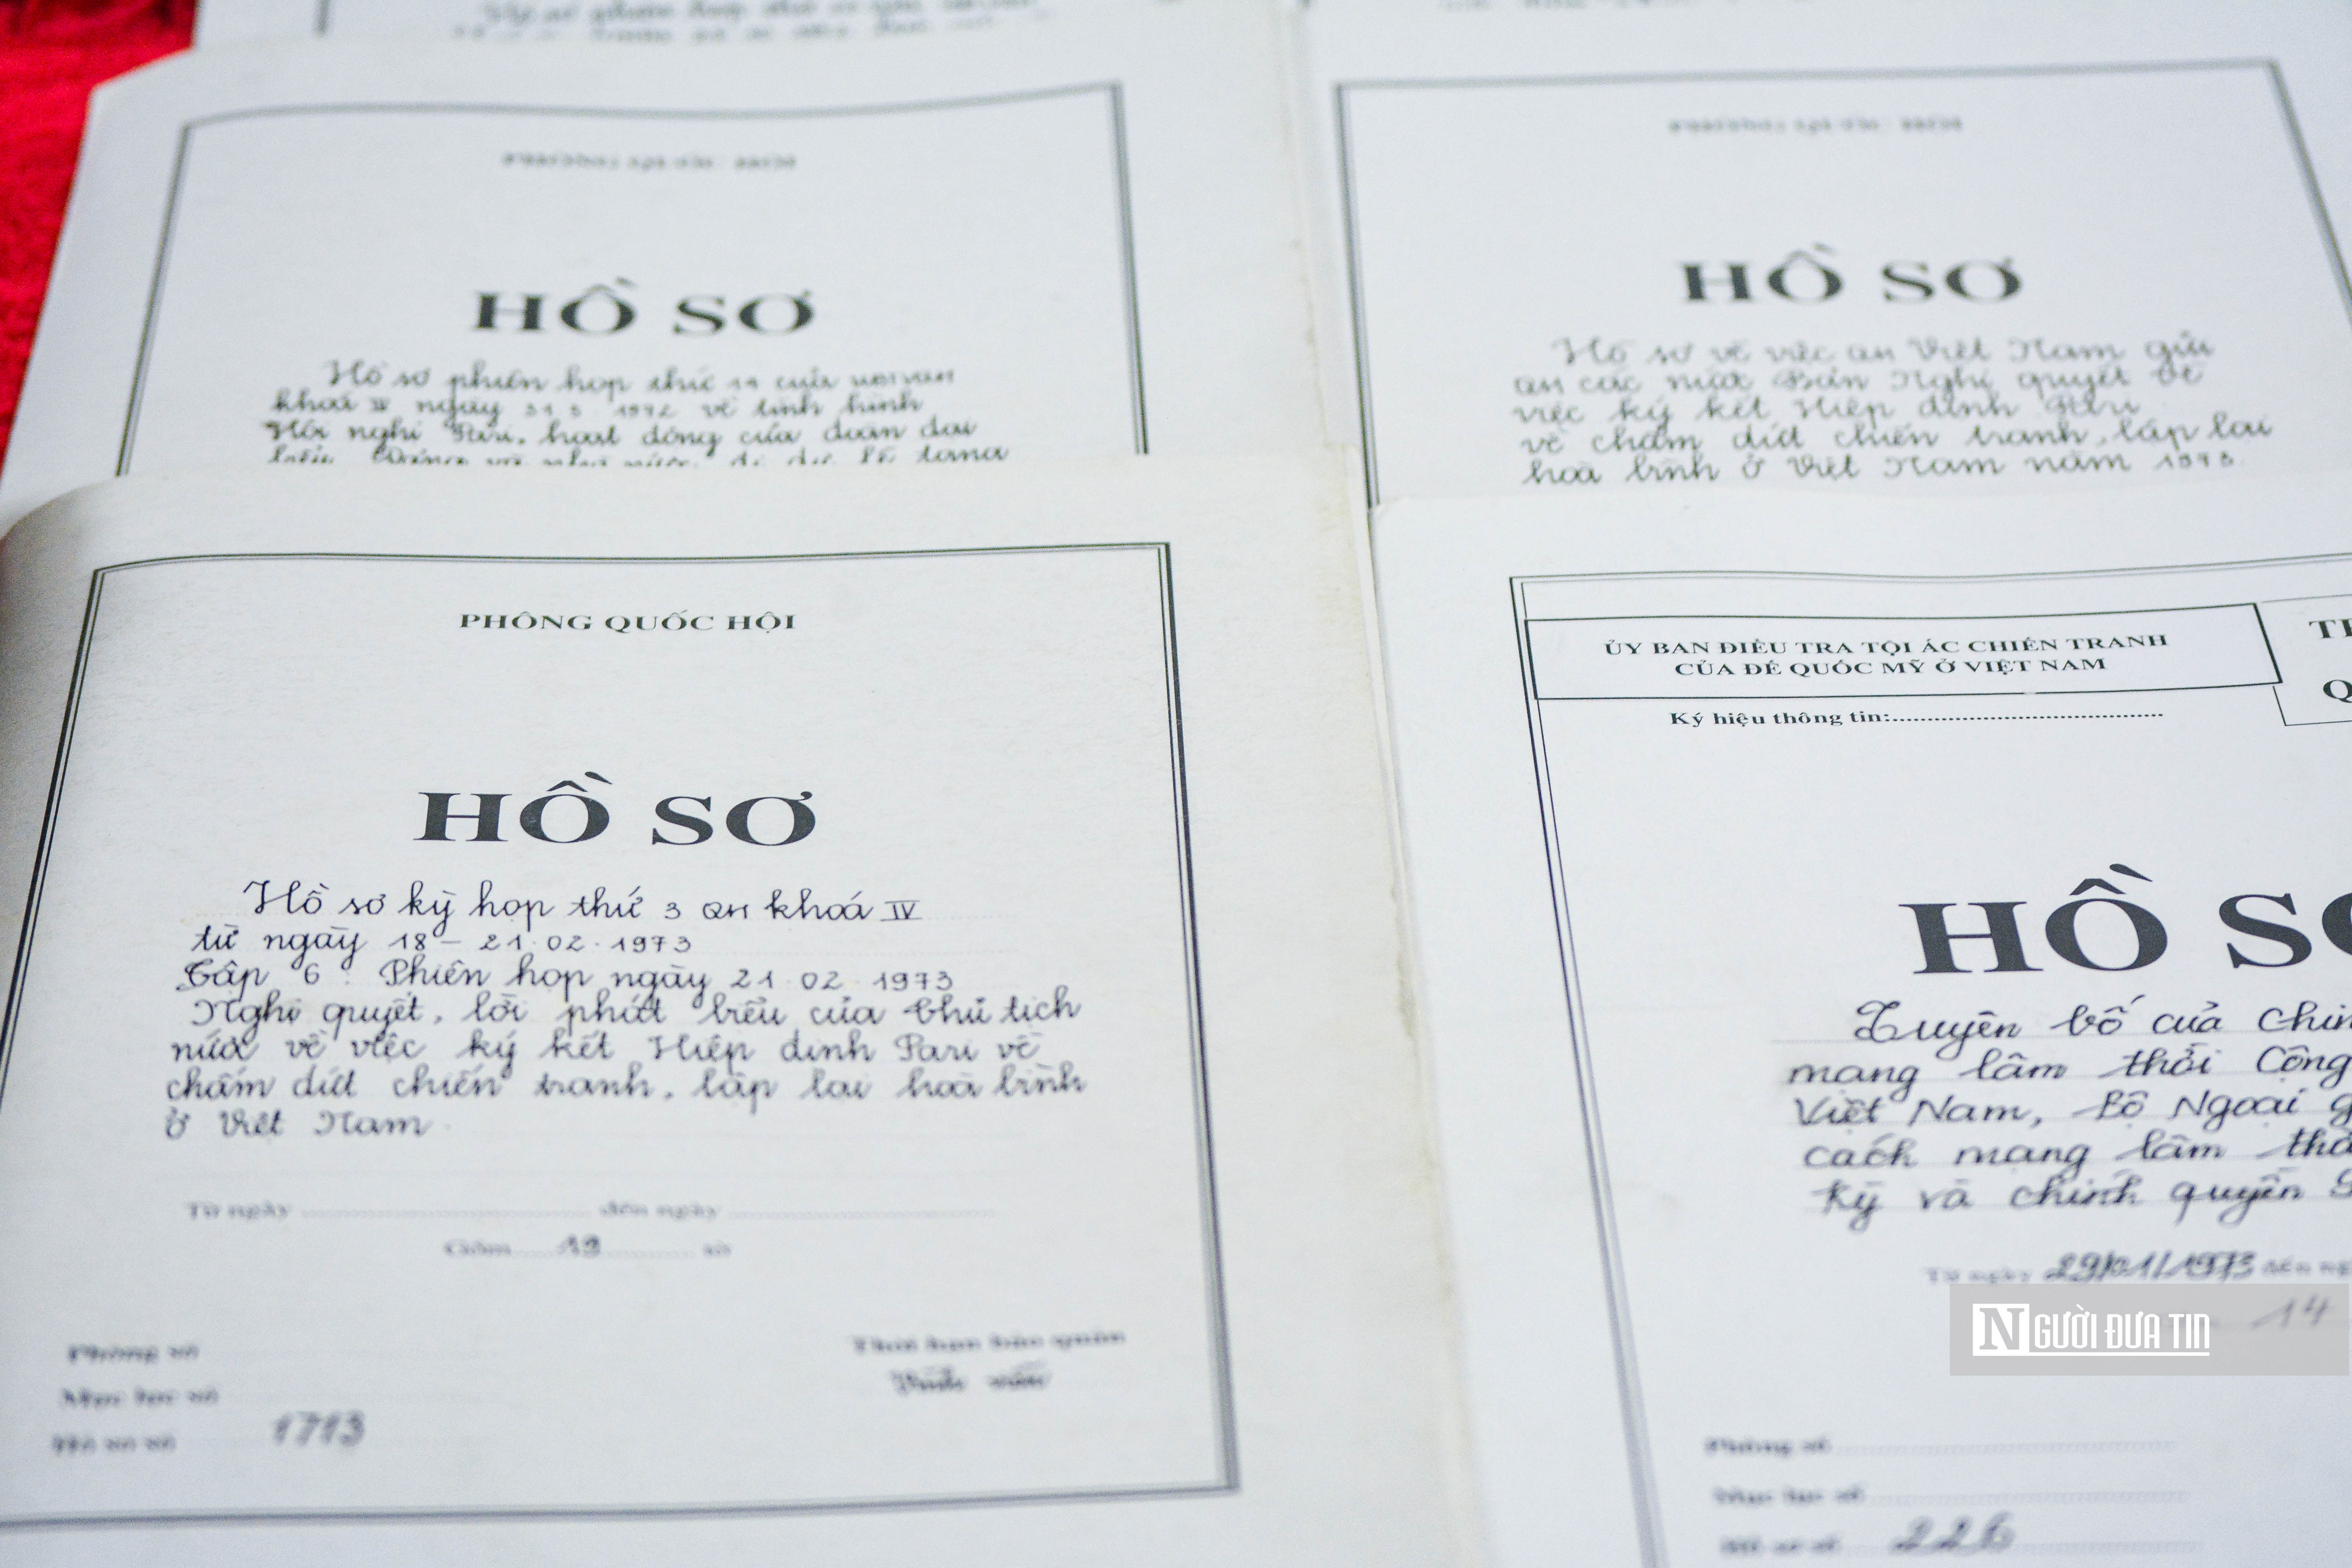 HỒ SƠ
Hồ sơ phiên họp thứ
khoá IV ngày 1972 về tình hình
Hội nghị Pari, hoạt động của đoàn đại
HỒ SƠ
Hồ sơ về việc QH Việt Nam gửi
QH các nước Bản Nghị quyết về
việc ký kết Hiệp định Pari
về chấm dứt chiến tranh, lập lại
hoà bình ở Việt Nam năm 1973.
PHÔNG QUỐC HỘI
HỒ SƠ
Hồ sơ kỳ họp thứ 3 QH khoá IV
từ ngày 18 - 21.02.1973
Tập 6: Phiên họp ngày 21.02.1973
Nghị quyết, lời phát biểu của Chủ tịch
nước về việc ký kết Hiệp định Pari về
chấm dứt chiến tranh, lập lại hoà bình
ở Việt Nam
Từ ngày đến ngày
Gồm 19 tờ
Phông số
Thời hạn bảo quản
Mục lục số
Vĩnh viễn
Hồ sơ số 1713
ỦY BAN ĐIỀU TRA TỘI ÁC CHIẾN TRANH
CỦA ĐẾ QUỐC MỸ Ở VIỆT NAM
Ký hiệu thông tin:
HỒ SƠ
Tuyên bố của Chín
mạng lâm thời Cộng
Việt Nam, Bộ Ngoại g
cách mạng lâm thờ
Kỳ và chính quyền S
Từ ngày 29/01/1973 đến ng
14
NGƯỜI ĐƯA TIN
Phông số
Mục lục số
Hồ sơ số 226